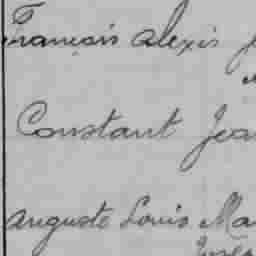 François Alexis
Constant Jea
Auguste Louis Ma
Josep